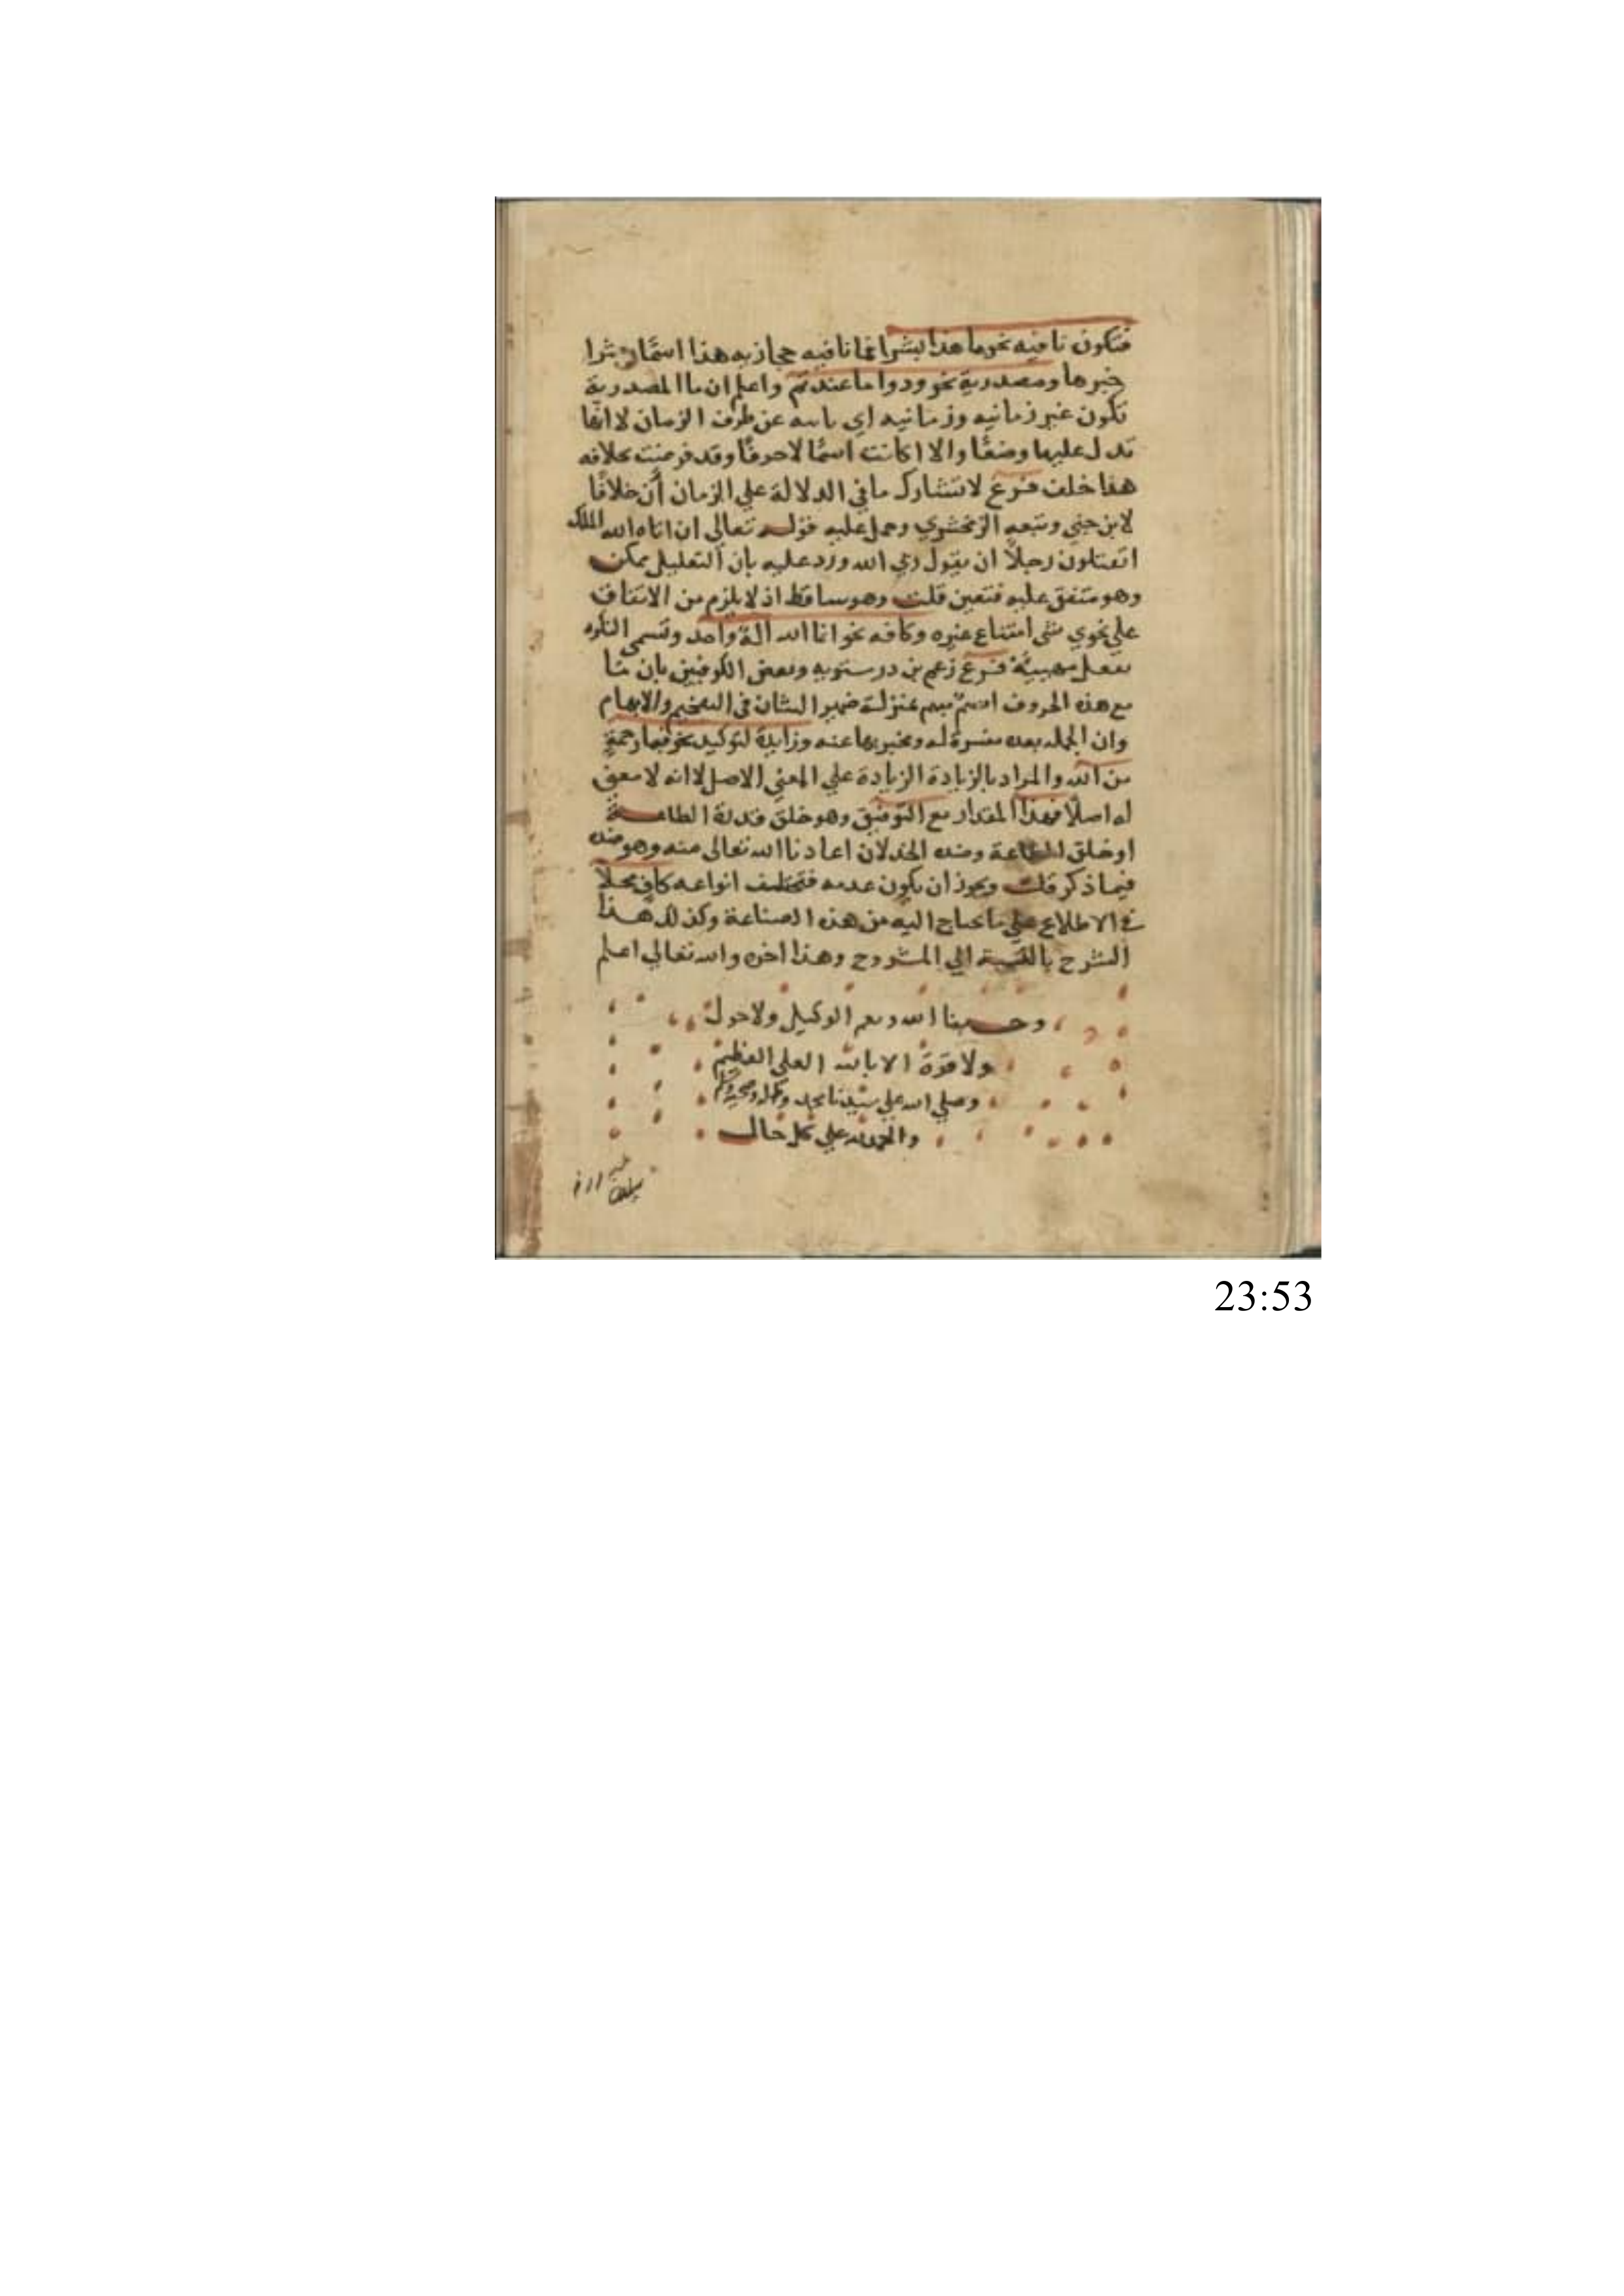 فتكون نافيه نحو ما هذا بشرا فما نافيه حجازيه هذا اسمها وبشرا
خبرها ومصدرية نحو ودوا ما عنتم واعلم ان ما المصدرية
تكون غير زمانيه وزمانيه اي نايبه عن ظرف الزمان لا انها
تدل عليها وضعًا والا لكانت اسمًا لا حرفًا وقد فرضت بخلافه
هذا خلف فرع لا تشارك ما في الدلالة علي الزمان أن خلافًا
لابن جني وتبعه الزمخشري وحمل عليه قوله تعالي ان اتاه الله الملك
اتقتلون رجلاً ان يقول ربي الله ورد عليه بان التعليل ممكن
وهو متفق عليه فتعين قلت وهو ساقط اذ لا يلزم من الاتفاق
علي شي امتناع غيره وكافه نحو انما الله اله واحد وتسمي
فرع زعم بن درستويه وبعض الكوفيين بان ما
مع هذه الحروف اسم مبهم بمنزلة ضمير الشان في التفخيم والابهام
وان الجملة بعده مفسرة له ومخبر بها عنه وزايدة لتوكيد نحو فبما رحمةٍ
من الله والمراد بالزيادة الزيادة علي المعني الاصل لا انه لا معني
له اصلًا فهذا المقدار مع التوفيق وهو خلق قدرة الطاعة
او خلق الطاعة وضده الخذلان اعاذنا الله تعالى منه وهو ضده
فيما ذكر قلت ويجوز ان يكون عدمه فتختلف انواعه كافٍ
في الاطلاع علي ما يحتاج اليه من هذه الصناعة وكذلك هذا
الشرح بالنسبة الي المشروح وهذا اخره والله تعالي اعلم
وحسبنا الله ونعم الوكيل ولا حول
ولا قوة الا بالله العلي العظيم
وصلي الله علي سيدنا محمد وآله وصحبه وسلم
والحمد لله علي كل حال
23:53